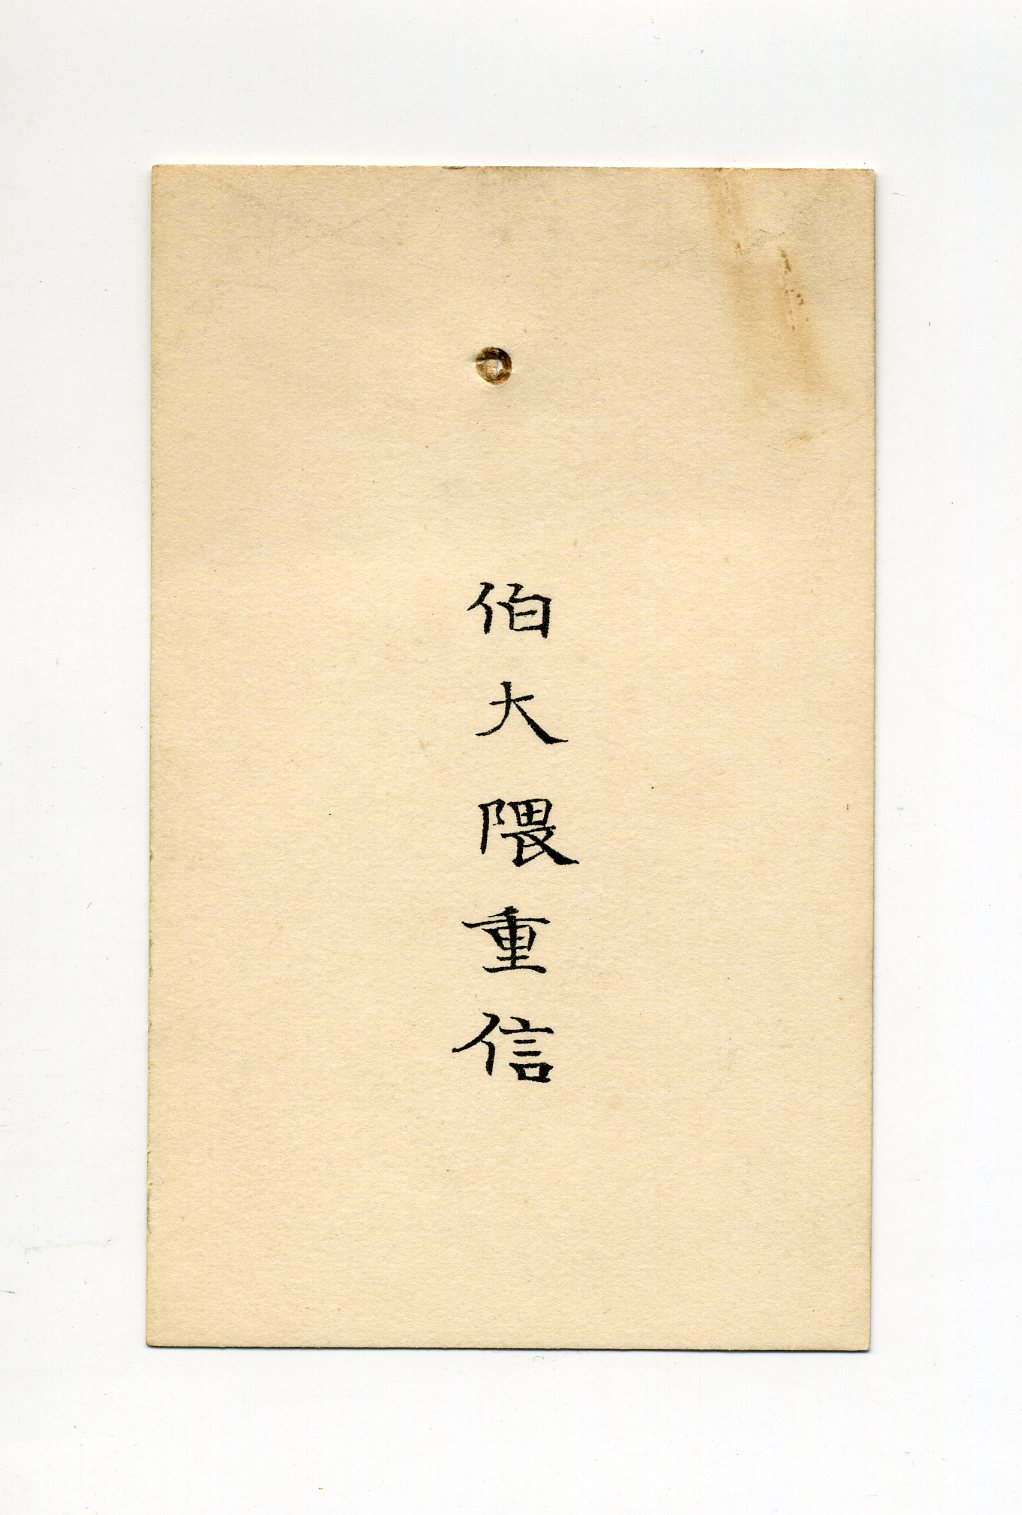 伯大隈重信